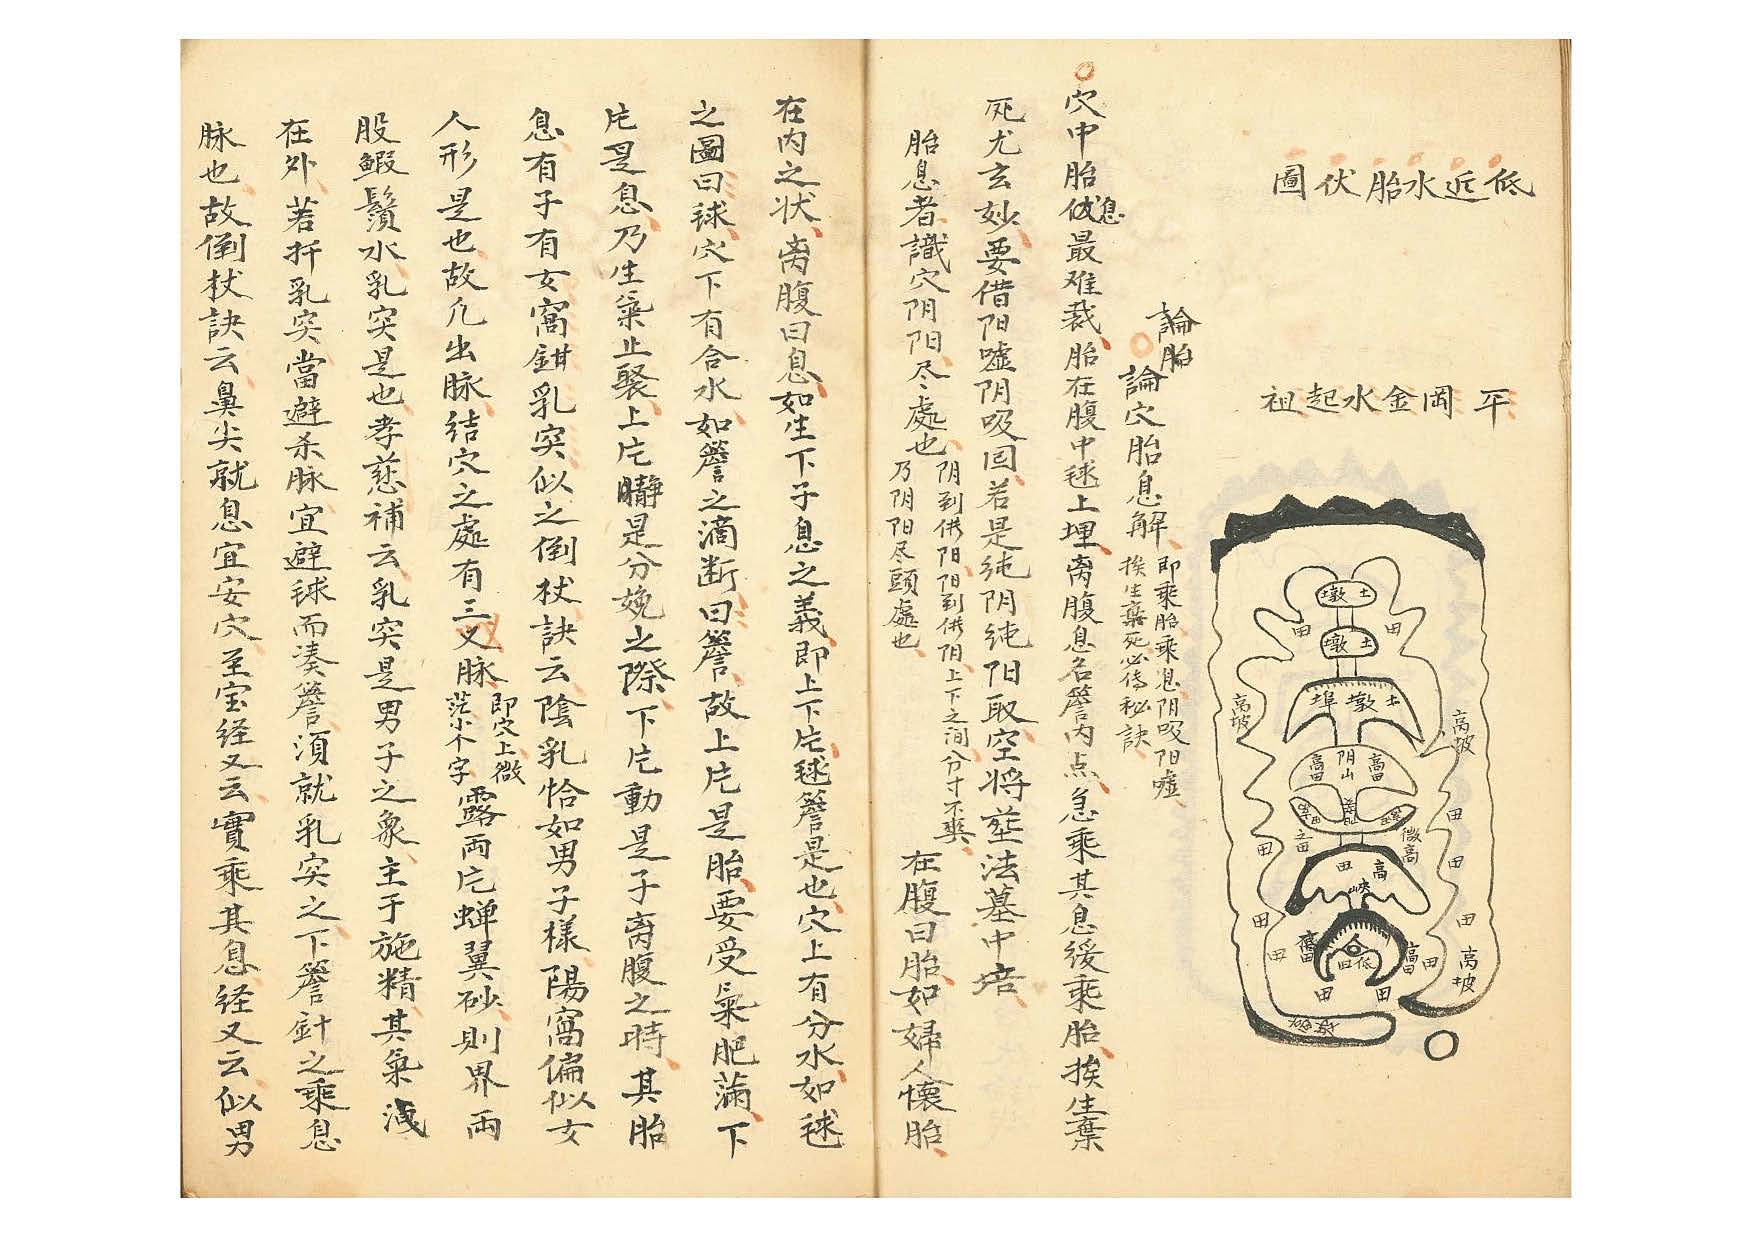 低近水胎伏圖
平岡金水起祖
土墩
土墩
土墩埠
高坡
高坡
高田
阴山
高田
田
田
田
田
田
田
微高
高
田
峡
田
田
田
高田
低田
田
田
高坡
論胎
論穴胎息解
即乘胎乘息阴吸阳嘘
挨生棄死必傳秘訣
穴中胎伏息最难裁胎在腹中毬上埋离腹息名簷内点急乘其息缓乘胎挨生棄
死尤玄妙要借阳嘘阴吸回若是纯阴纯阳取空将塟法墓中培
胎息者識穴阴阳尽處也
阴到供阳阳到供阴上下之间分寸不爽
乃阴阳尽頭處也
在腹曰胎如婦人懷胎
在内之状离腹曰息如生下子息之義即上下片毬簷是也穴上有分水如毬
之圖曰毬穴下有合水如簷之滴断曰簷故上片是胎要受氣肥满下
片是息乃生氣止聚上片是分娩之際下片動是子离腹之時其胎
息有子有女窩鉗乳突似之倒杖訣云陰乳恰如男子樣陽窩偏似女
人形是也故凡出脉结穴之處有三义脉
即穴上微
茫小个字
露両片蝉翼砂則界両
股鰕鬚水乳突是也孝慈補云乳突是男子之象主于施精其氣洩
在外若扦乳突當避杀脉宜避毬而凑簷須就乳突之下簷針之乘息
脉也故倒杖訣云鼻尖就息宜安穴至宝经又云實乘其息经又云似男